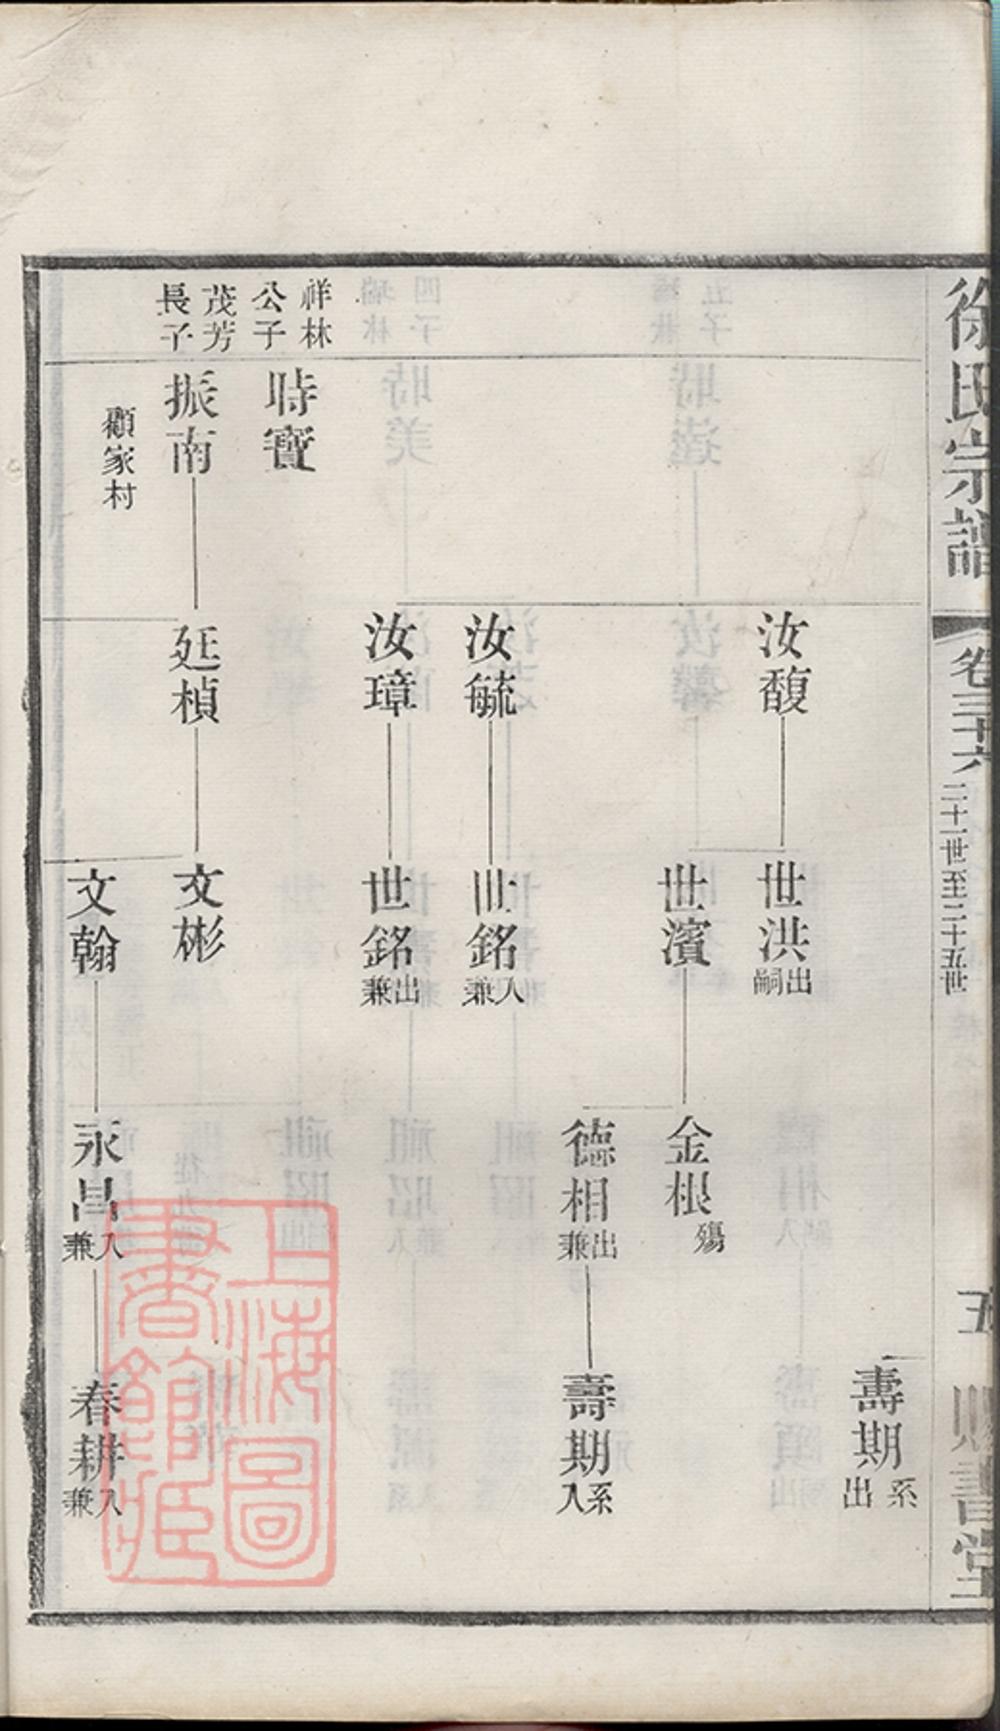 徐氏宗譜
卷三十六
二十一世至二十五世
五
賜書堂
祥林
公子
茂芳
長子
時寶
振南
顧家村
汝馥
汝毓
汝璋
延楨
世洪
出嗣
世濱
世銘
入兼
世銘
出兼
文彬
文翰
金根
殤
德相
出兼
永昌
入兼
壽期
系出
壽期
系入
春耕
入兼
上海圖
書館藏